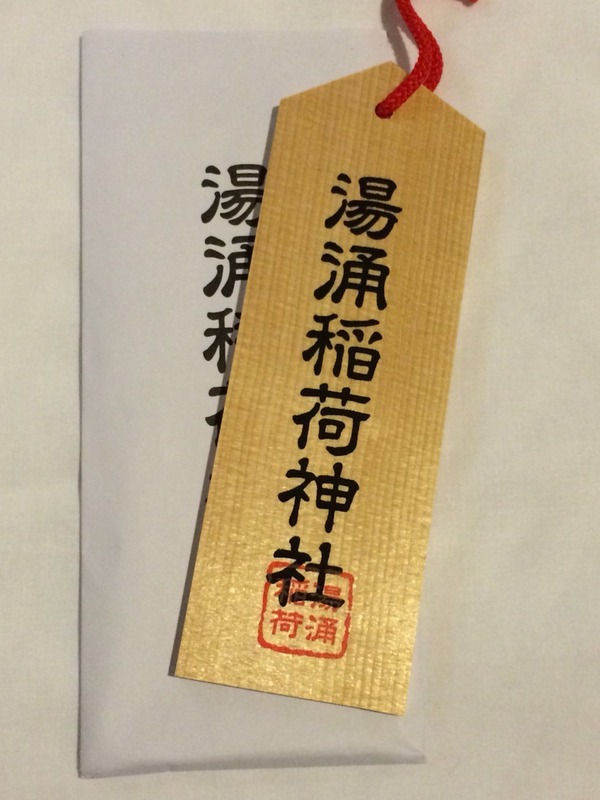 湯涌稲荷神社
湯涌
稲荷
湯涌